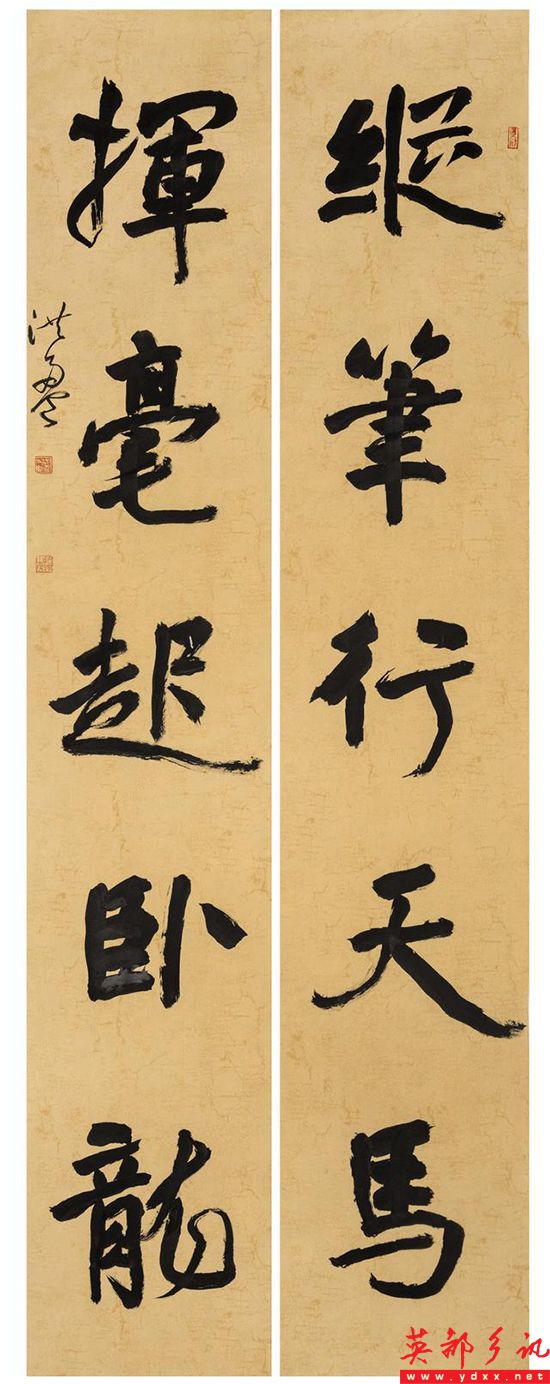 縱筆行天馬
揮毫起卧龍
洪
英都乡讯
www.ydxx.net